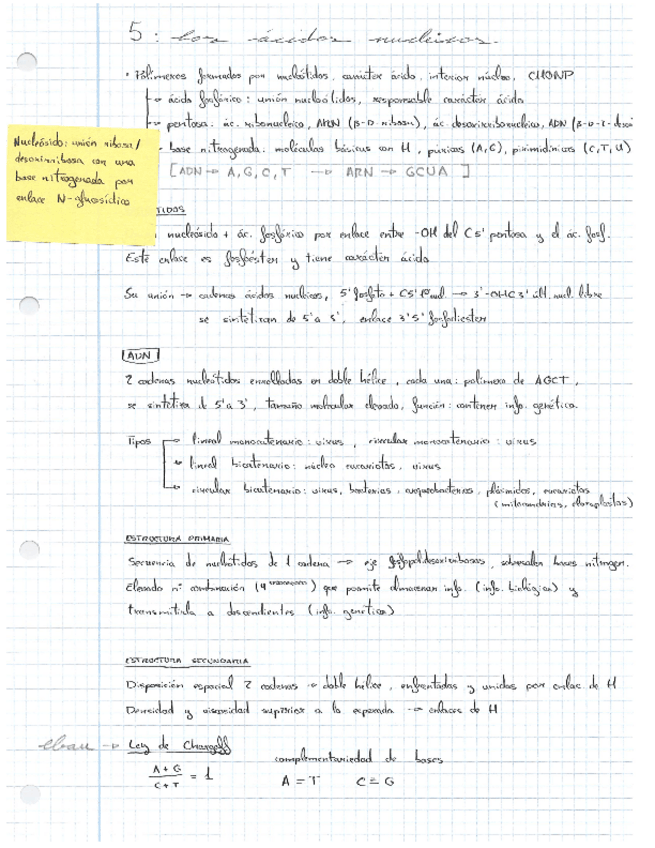 5: Los ácidos nucleicos.
· Polímeros formados por nucleótidos, carácter ácido, interior núcleo, CHONP
→ ácido fosfórico: unión nucleótidos, responsable carácter ácido
→ pentosa: ác. ribonucleico, ARN (β-D-ribosa), ác. desoxirribonucleico, ADN (β-D-2-
base nitrogenada: moléculas básicas con H, púricas (A,G), pirimidínicas (C,T,U)
[ADN → A, G, C, T → ARN → GCUA]
Nucleósido: unión ribosa/
desoxirribosa con una
base nitrogenada por
enlace N-glucosídico
TIDOS
nucleósido + ác. fosfórico por enlace entre -OH del C5' pentosa y el ác. fosf.
Este enlace es fosfoéster y tiene carácter ácido
Su unión → cadenas ácidos nucleicos, 5' fosfato + C5' 1º nucl. → 3'-OHC3' últ. nucl. libre
se sintetizan de 5' a 3', enlace 3'5' fosfodiester
ADN
2 cadenas nucleótidos enrolladas en doble hélice, cada una: polímero de AGCT,
se sintetiza de 5' a 3', tamaño molecular elevado, función: contener info. genética.
Tipos → lineal monocatenario: virus, circular monocatenario: virus
→ lineal bicatenario: núcleo eucariotas, virus
→ circular bicatenario: virus, bacterias, arqueobacterias, plásmidos, eucariotas
(mitocondrias, cloroplastos)
ESTRUCTURA PRIMARIA
Secuencia de nucleótidos de 1 cadena → eje fosfopoldesoxirribosas, sobresalen bases nitrogen.
Elevado nº combinación (4) que permite almacenar info. (info. biológica) y
transmitirla a descendientes (info. genética)
ESTRUCTURA SECUNDARIA
Disposición espacial 2 cadenas → doble hélice, enfrentadas y unidas por enlac. de H
Densidad y viscosidad superior a la esperada → enlaces de H
ebau → Ley de Chargaff
complementariedad de bases
A + G / C + T = 1
A = T C ≡ G